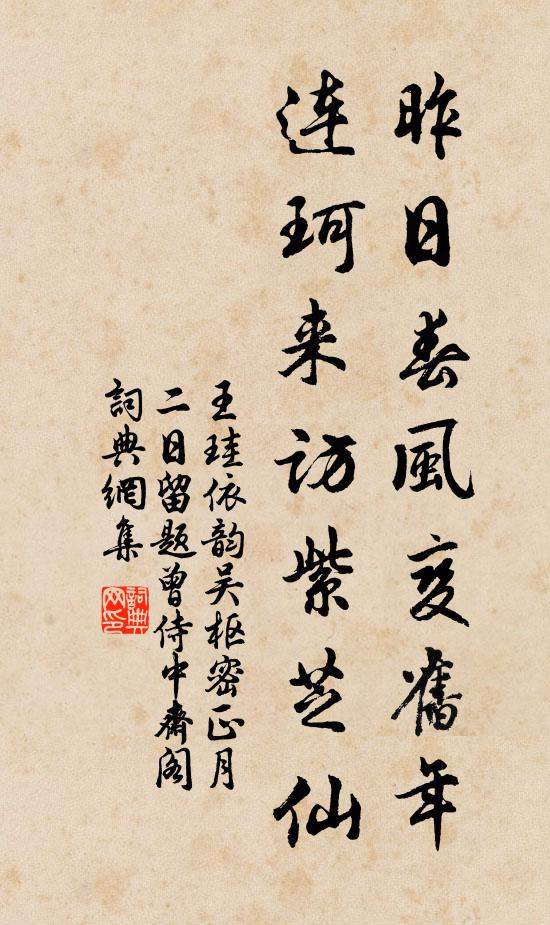 昨日春風变舊年
連珂来訪紫芝仙
王珪依韵吴枢密正月
二日留题曾侍中齋阁
詞典網集
詞典网印